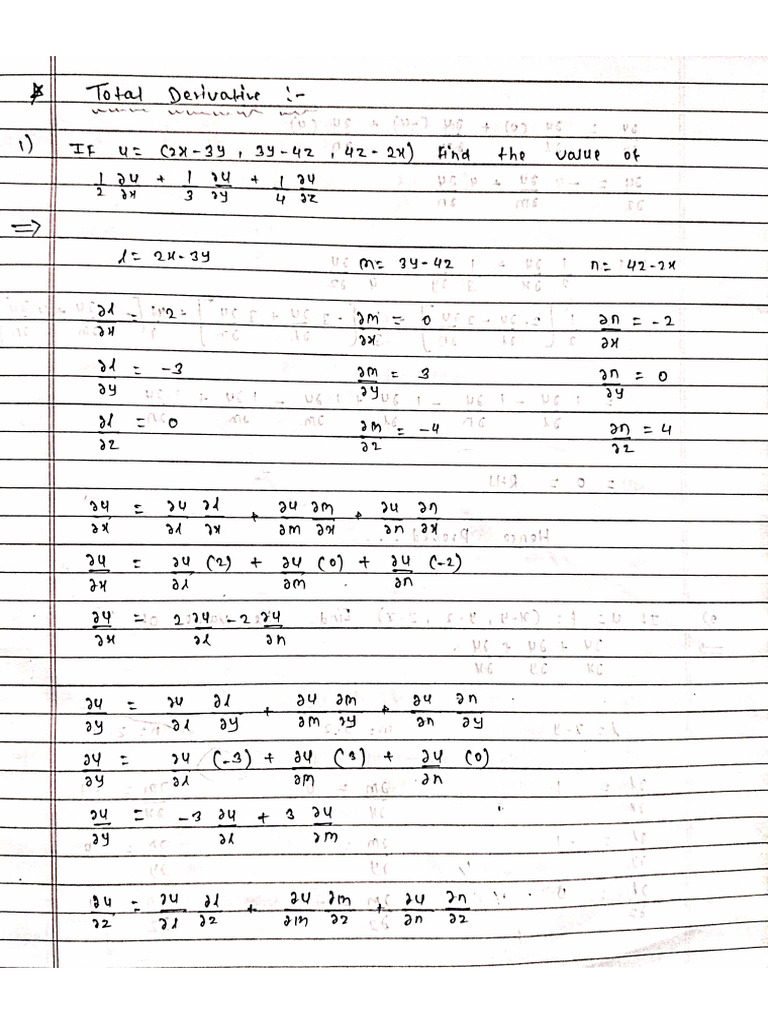 * Total Derivative :-
1) IF u = (2x-3y, 3y-4z, 4z-2x) find the value of
1/2 ∂u/∂x + 1/3 ∂u/∂y + 1/4 ∂u/∂z
⇒
l = 2x-3y m = 3y-4z n = 4z-2x
∂l/∂x = 2 ∂m/∂x = 0 ∂n/∂x = -2
∂l/∂y = -3 ∂m/∂y = 3 ∂n/∂y = 0
∂l/∂z = 0 ∂m/∂z = -4 ∂n/∂z = 4
∂u/∂x = ∂u/∂l ∂l/∂x + ∂u/∂m ∂m/∂x + ∂u/∂n ∂n/∂x
∂u/∂x = ∂u/∂l (2) + ∂u/∂m (0) + ∂u/∂n (-2)
∂u/∂x = 2 ∂u/∂l - 2 ∂u/∂n
∂u/∂y = ∂u/∂l ∂l/∂y + ∂u/∂m ∂m/∂y + ∂u/∂n ∂n/∂y
∂u/∂y = ∂u/∂l (-3) + ∂u/∂m (3) + ∂u/∂n (0)
∂u/∂y = -3 ∂u/∂l + 3 ∂u/∂m
∂u/∂z = ∂u/∂l ∂l/∂z + ∂u/∂m ∂m/∂z + ∂u/∂n ∂n/∂z